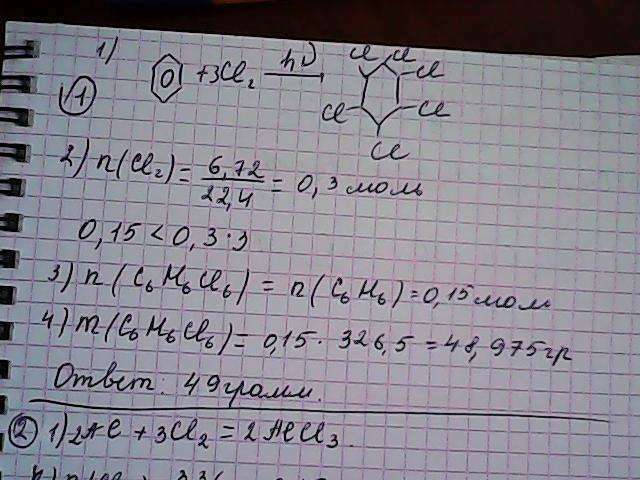 1)
1 + 3Cl₂ hν→ Cl Cl Cl Cl Cl Cl
2) n(Cl₂) = 6,72 / 22,4 = 0,3 моль
0,15 < 0,3·3
3) n(C₆H₆Cl₆) = n(C₆H₆) = 0,15 моль
4) m(C₆H₆Cl₆) = 0,15 · 326,5 = 48,975гр
Ответ: 49грамм.
2 1) 2Al + 3Cl₂ = 2AlCl₃.